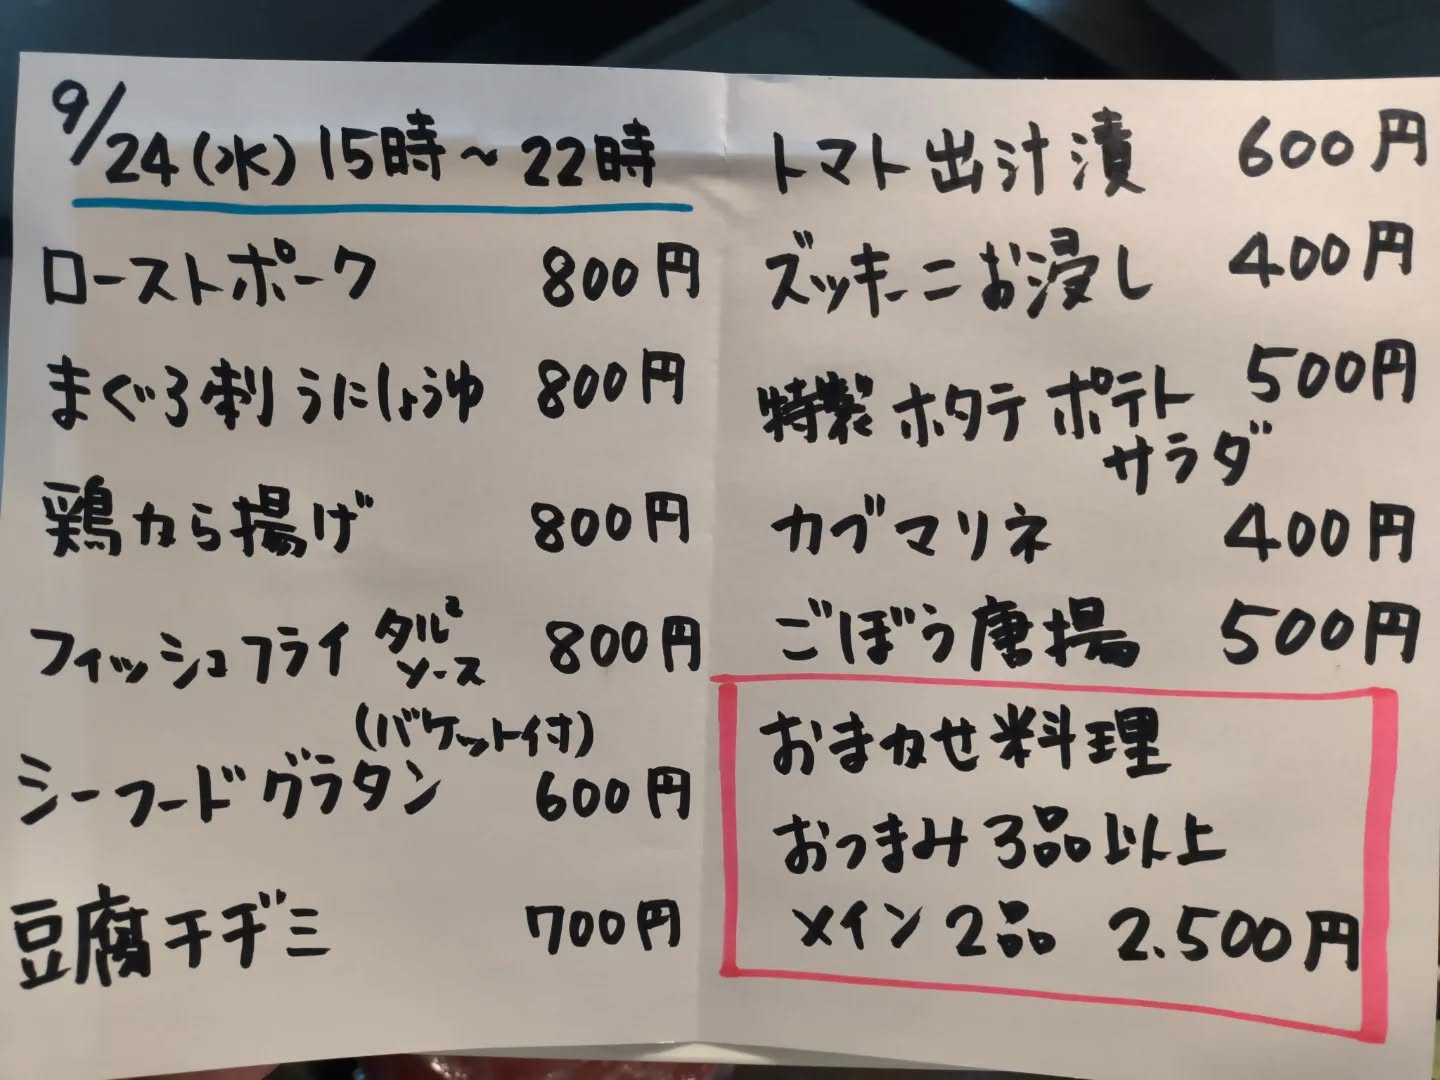 9/24(水)15時～22時
ローストポーク 800円
まぐろ刺うにしょうゆ 800円
鶏から揚げ 800円
フィッシュフライ タル² 800円
ソース
(バケット付)
シーフードグラタン 600円
豆腐チヂミ 700円
トマト出汁漬 600円
ズッキーニお浸し 400円
特製ホタテポテト 500円
サラダ
カブマリネ 400円
ごぼう唐揚 500円
おまかせ料理
おつまみ3品以上
メイン2品 2.500円